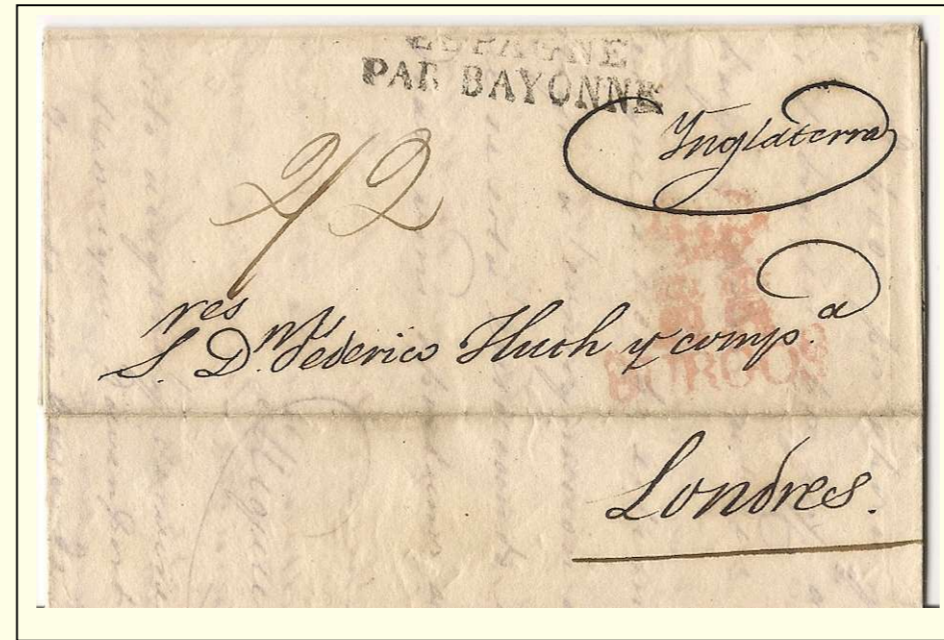 ESPAGNE
PAR BAYONNE
Ynglaterra
2/2
S.res D.n Federico Huth y comp.a
BURGOS
Londres.